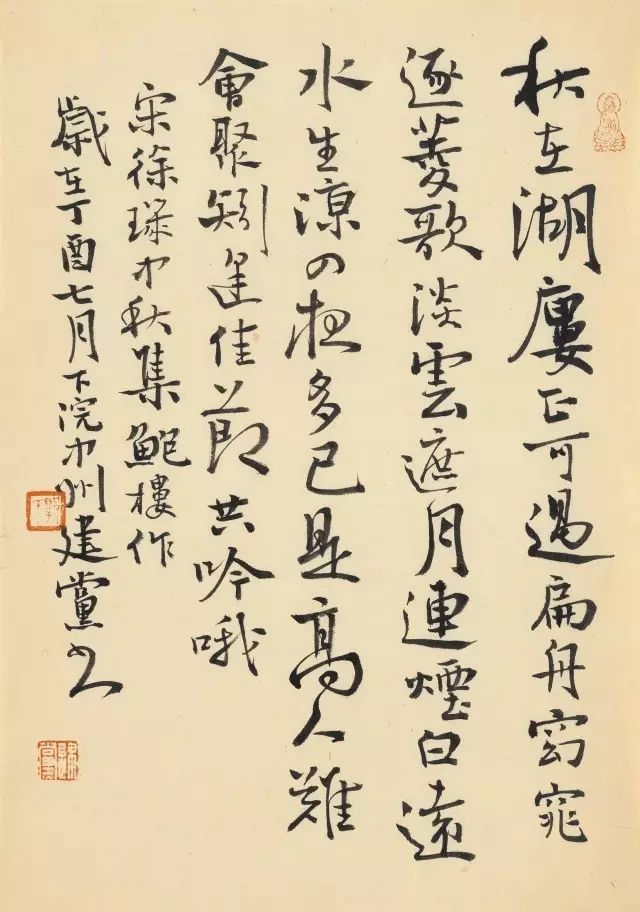 秋在湖廔正可過扁舟窈窕
逐菱歌淡雲遮月連煙白遠
水生涼夜多已是高人難
會聚矧逢佳節共吟哦
宋徐璣中秋集鮑樓作
歲在丁酉七月下浣中州建黨書